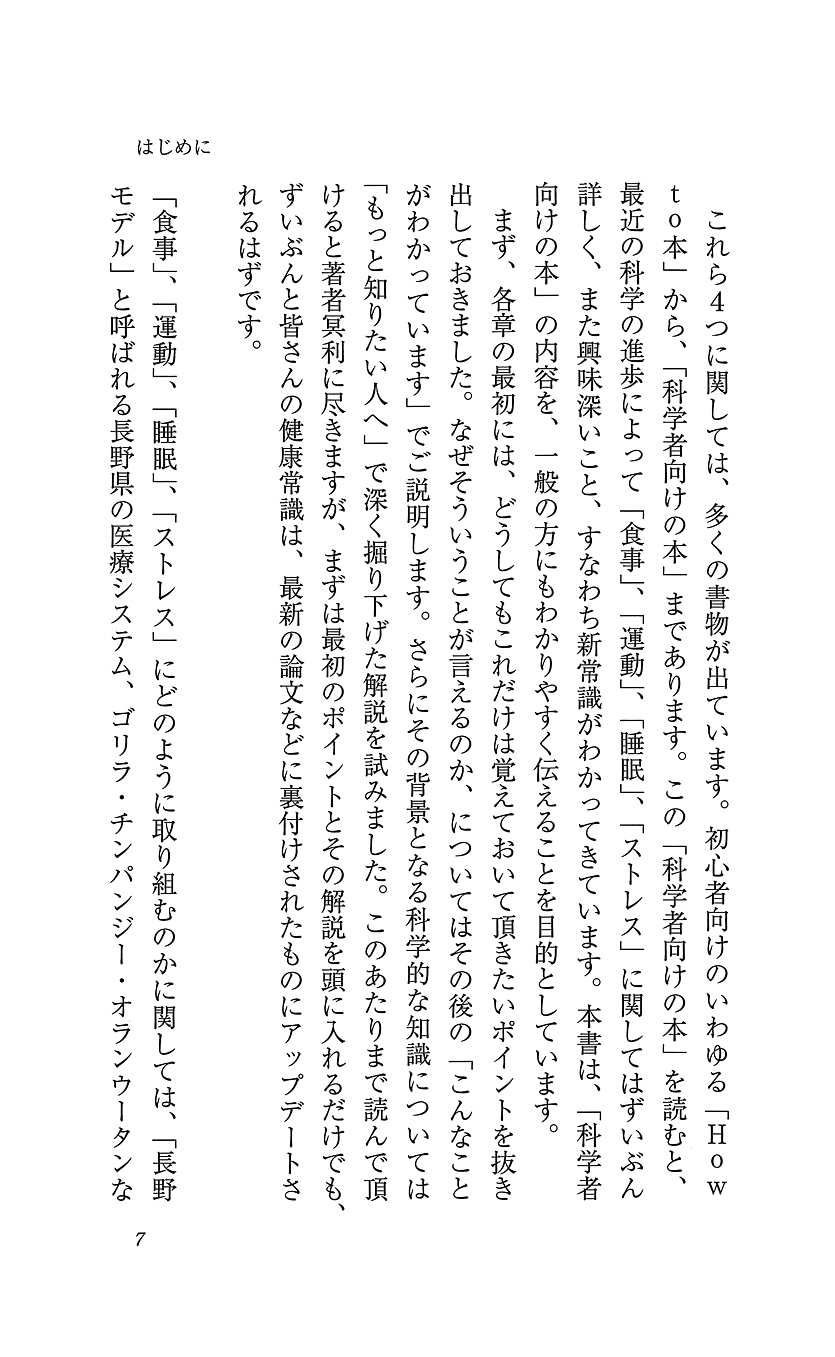 はじめに
　これら4つに関しては、多くの書物が出ています。初心者向けのいわゆる「How
to本」から、「科学者向けの本」まであります。この「科学者向けの本」を読むと、
最近の科学の進歩によって「食事」、「運動」、「睡眠」、「ストレス」に関してはずいぶん
詳しく、また興味深いこと、すなわち新常識がわかってきています。本書は、「科学者
向けの本」の内容を、一般の方にもわかりやすく伝えることを目的としています。
　まず、各章の最初には、どうしてもこれだけは覚えておいて頂きたいポイントを抜き
出しておきました。なぜそういうことが言えるのか、についてはその後の「こんなこと
がわかっています」でご説明します。さらにその背景となる科学的な知識については
「もっと知りたい人へ」で深く掘り下げた解説を試みました。このあたりまで読んで頂
けると著者冥利に尽きますが、まずは最初のポイントとその解説を頭に入れるだけでも、
ずいぶんと皆さんの健康常識は、最新の論文などに裏付けされたものにアップデートさ
れるはずです。
「食事」、「運動」、「睡眠」、「ストレス」にどのように取り組むのかに関しては、「長野
モデル」と呼ばれる長野県の医療システム、ゴリラ・チンパンジー・オランウータンな
7